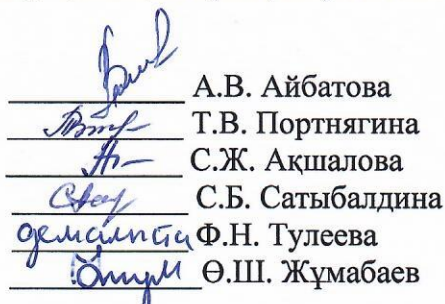 А.В. Айбатова
Т.В. Портнягина
С.Ж. Ақшалова
С.Б. Сатыбалдина
демалыста Ф.Н. Тулеева
Ө.Ш. Жұмабаев